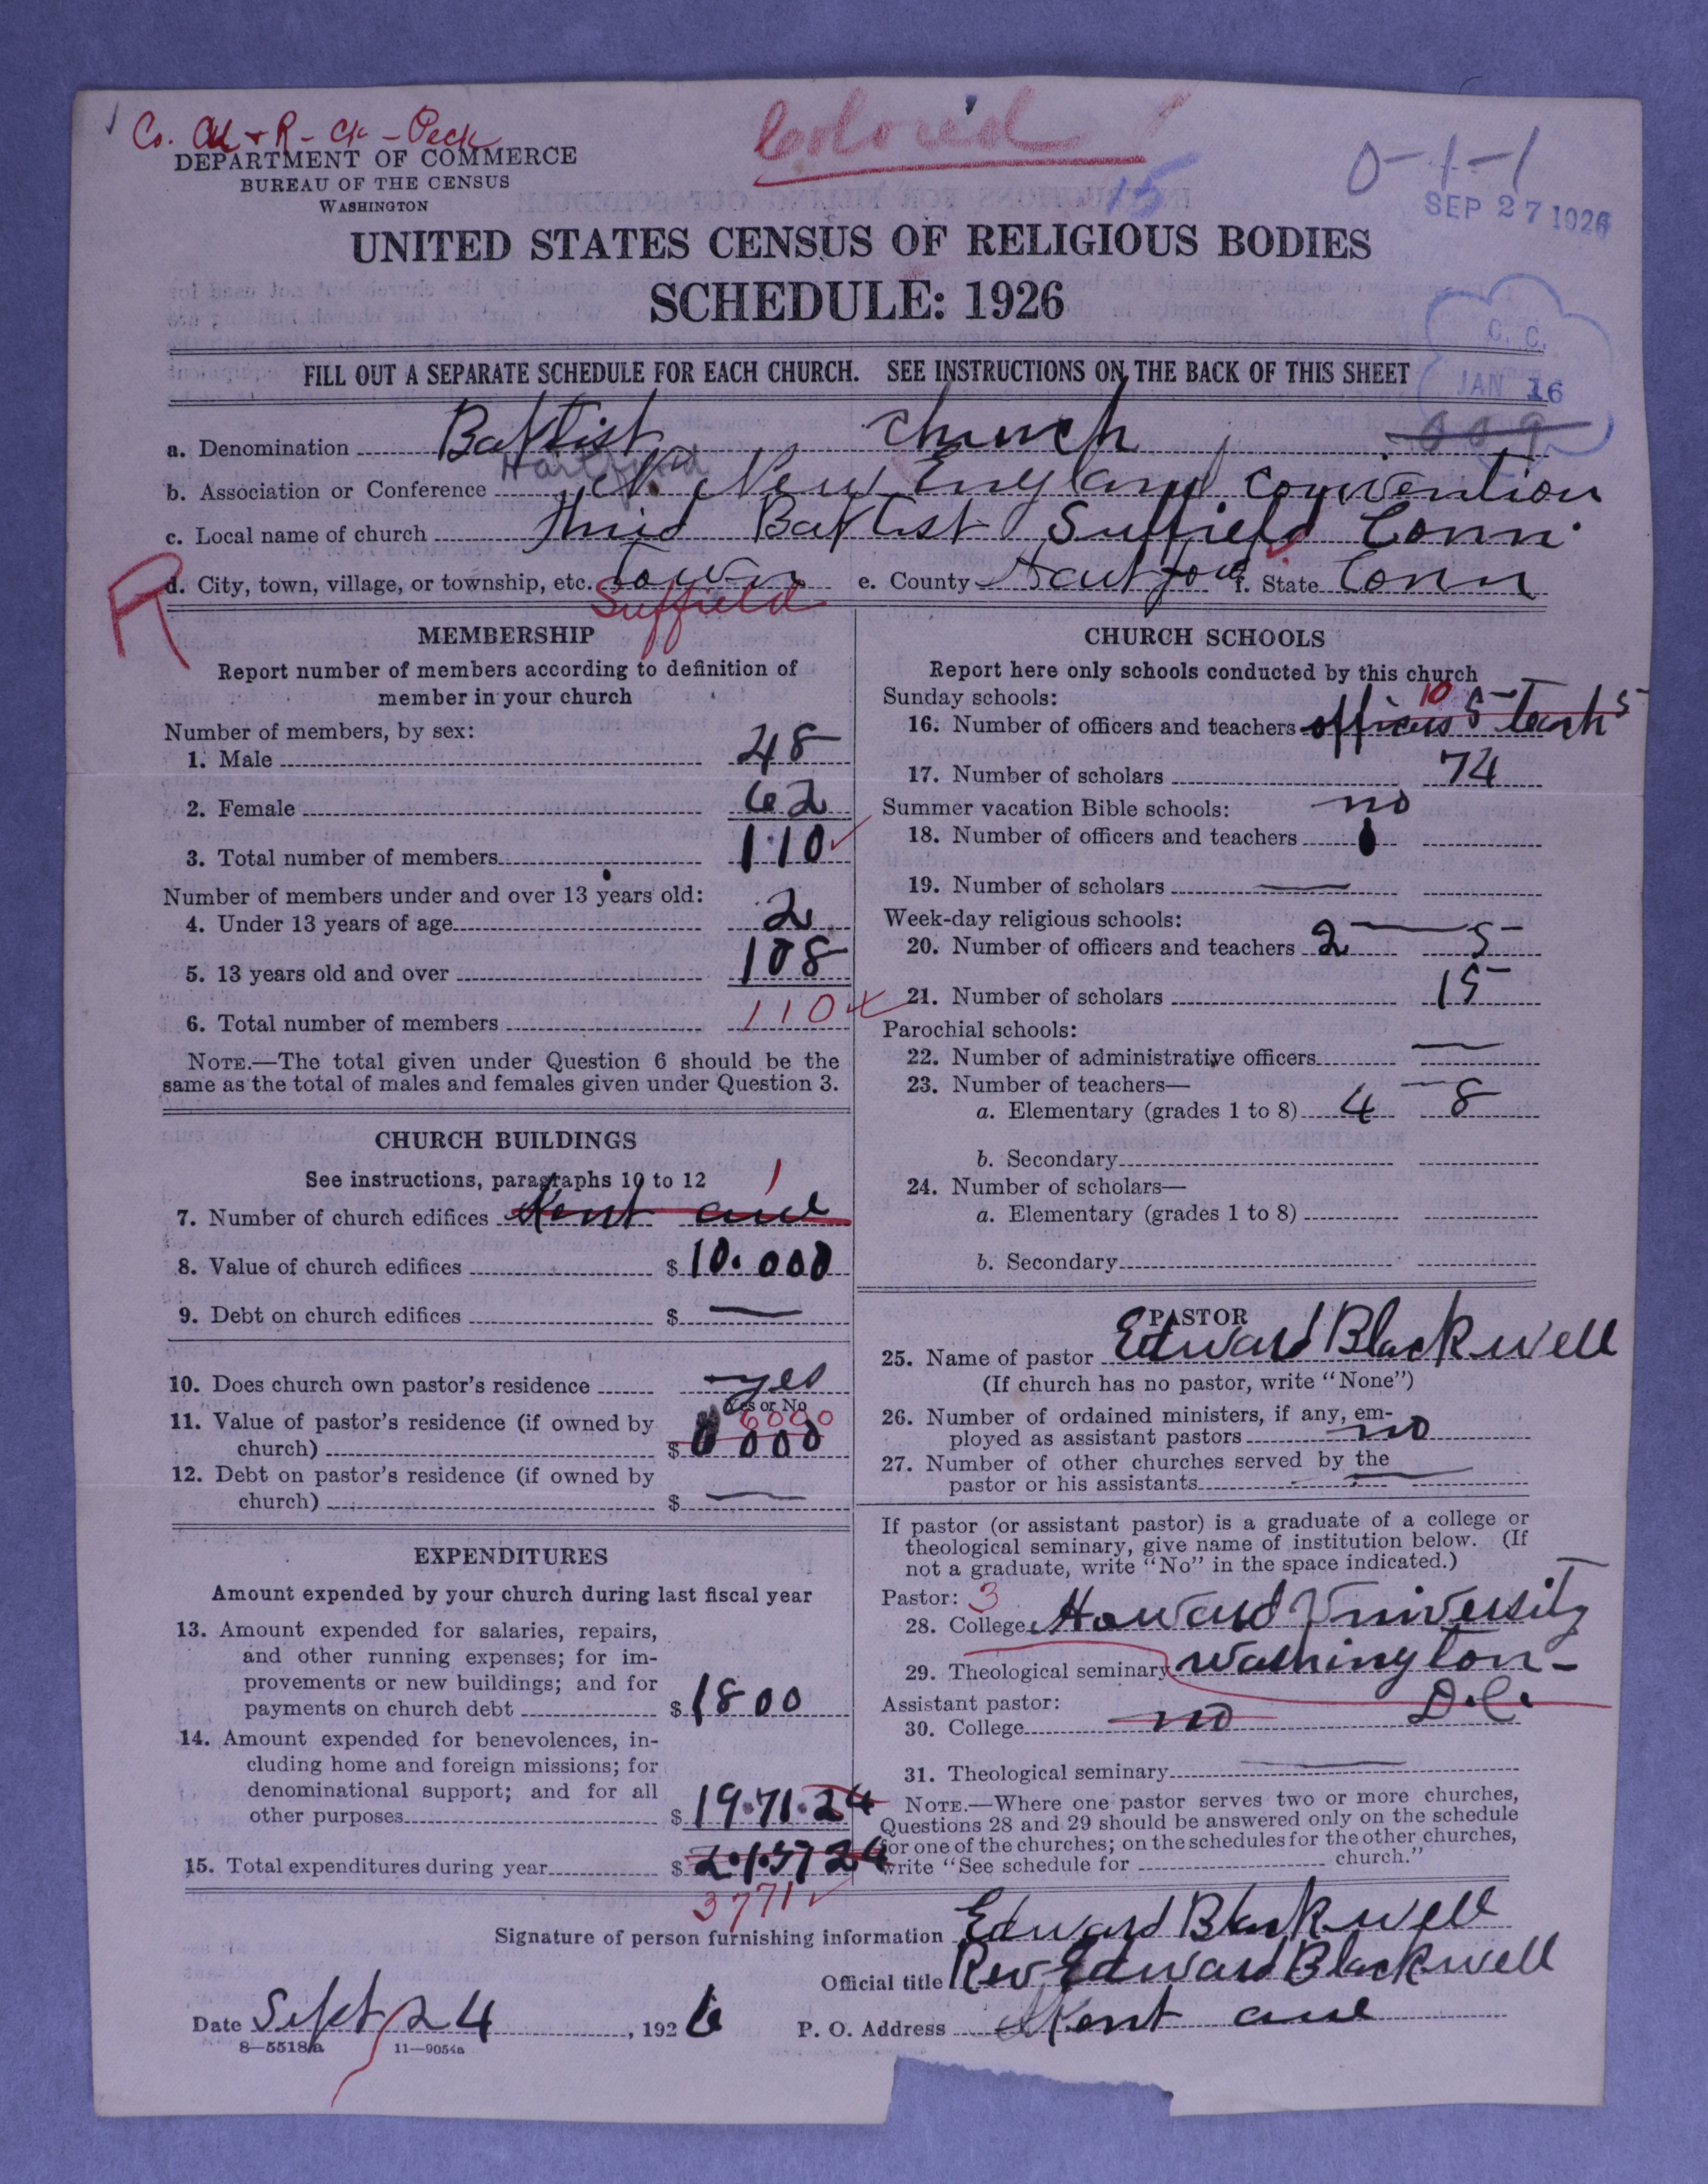 Co. Ch + R - Ck - Peck
Colored
DEPARTMENT OF COMMERCE
BUREAU OF THE CENSUS
WASHINGTON
15
0-1-1
SEP 27 1926
UNITED STATES CENSUS OF RELIGIOUS BODIES
SCHEDULE: 1926
C. C.
JAN 16
FILL OUT A SEPARATE SCHEDULE FOR EACH CHURCH. SEE INSTRUCTIONS ON THE BACK OF THIS SHEET
a. Denomination Baptist church 009
Hartford
b. Association or Conference New England convention
c. Local name of church Third Baptist Suffield Conn.
R
d. City, town, village, or township, etc. Town e. County Hartford f. State Conn
Suffield
MEMBERSHIP
Report number of members according to definition of
member in your church
Number of members, by sex:
1. Male 48
2. Female 62
3. Total number of members 110
Number of members under and over 13 years old:
4. Under 13 years of age 2
5. 13 years old and over 108
6. Total number of members 110
NOTE.—The total given under Question 6 should be the
same as the total of males and females given under Question 3.
CHURCH BUILDINGS
See instructions, paragraphs 10 to 12
1
7. Number of church edifices Kent ave
8. Value of church edifices $ 10.000
9. Debt on church edifices $ —
10. Does church own pastor's residence yes
Yes or No
11. Value of pastor's residence (if owned by 6000
church) $ 000
12. Debt on pastor's residence (if owned by
church) $ —
EXPENDITURES
Amount expended by your church during last fiscal year
13. Amount expended for salaries, repairs,
and other running expenses; for im-
provements or new buildings; and for
payments on church debt $ 1800
14. Amount expended for benevolences, in-
cluding home and foreign missions; for
denominational support; and for all
other purposes $ 19.71.24
15. Total expenditures during year $
3771
CHURCH SCHOOLS
Report here only schools conducted by this church
Sunday schools: 10
16. Number of officers and teachers officers 5 teach 5
17. Number of scholars 74
Summer vacation Bible schools: no
18. Number of officers and teachers
19. Number of scholars —
Week-day religious schools:
20. Number of officers and teachers 2 — 5
21. Number of scholars 15
Parochial schools:
22. Number of administrative officers —
23. Number of teachers—
a. Elementary (grades 1 to 8) 4 — 8
b. Secondary
24. Number of scholars—
a. Elementary (grades 1 to 8)
b. Secondary
PASTOR
25. Name of pastor Edward Blackwell
(If church has no pastor, write "None")
26. Number of ordained ministers, if any, em-
ployed as assistant pastors no
27. Number of other churches served by the
pastor or his assistants —
If pastor (or assistant pastor) is a graduate of a college or
theological seminary, give name of institution below. (If
not a graduate, write "No" in the space indicated.)
Pastor: 3
28. College Howard University
29. Theological seminary Washington -
Assistant pastor: D.C.
30. College no
31. Theological seminary —
NOTE.—Where one pastor serves two or more churches,
Questions 28 and 29 should be answered only on the schedule
for one of the churches; on the schedules for the other churches,
write "See schedule for church."
Signature of person furnishing information Edward Blackwell
Official title Rev Edward Blackwell
Date Sept 24, 1926 P. O. Address Kent ave
8—5518a 11—9054a